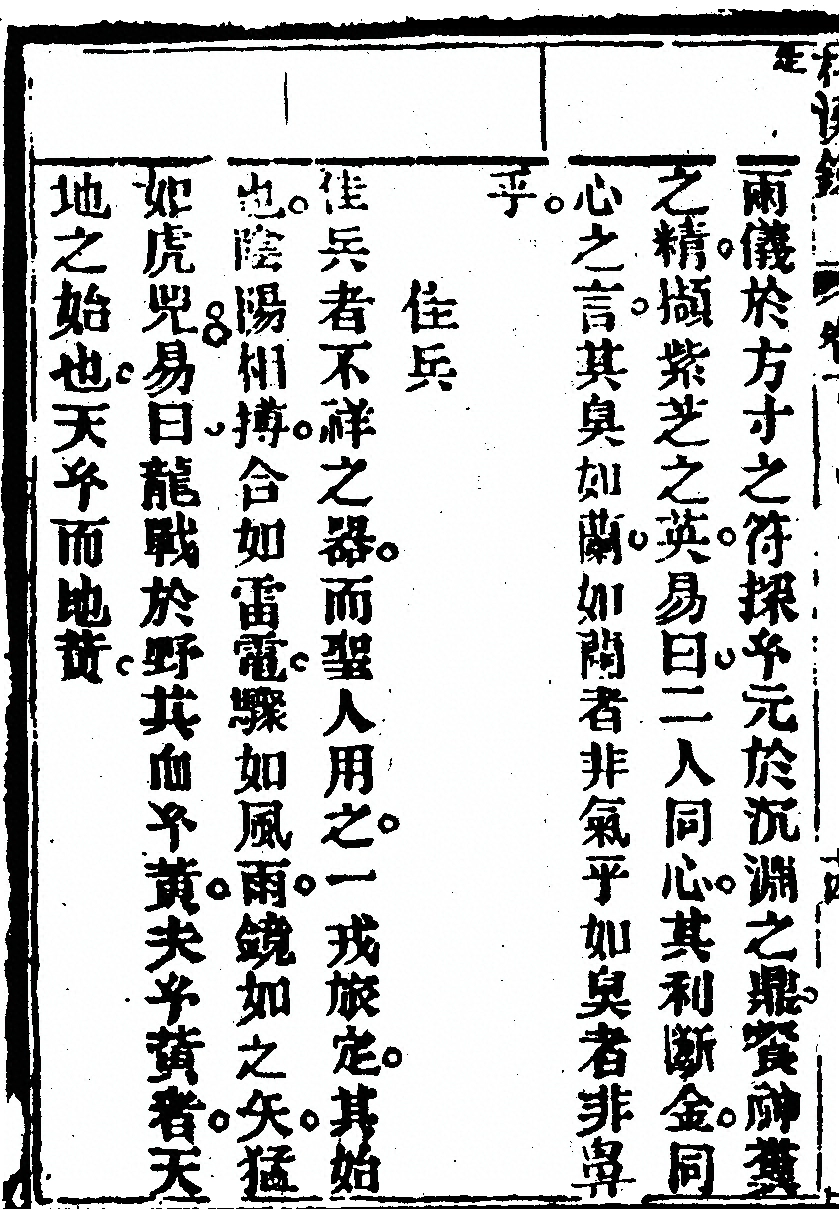 兩儀於方寸之符探玄元於沉淵之鼎餐神
之精擷紫芝之英易曰二人同心其利斷金同
心之言其臭如蘭如蘭者非氣乎如臭者非鼻
乎
佳兵
佳兵者不祥之器而聖人用之一戎旅定其始
也陰陽相搏合如雷電驟如風雨鏡如之矢猛
如虎兕易曰龍戰於野其血玄黃夫玄黃者天
地之始也天玄而地黃